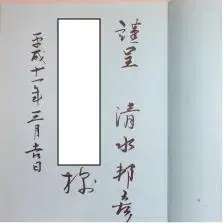 謹呈 清水邦彦
様
平成十一年三月吉日